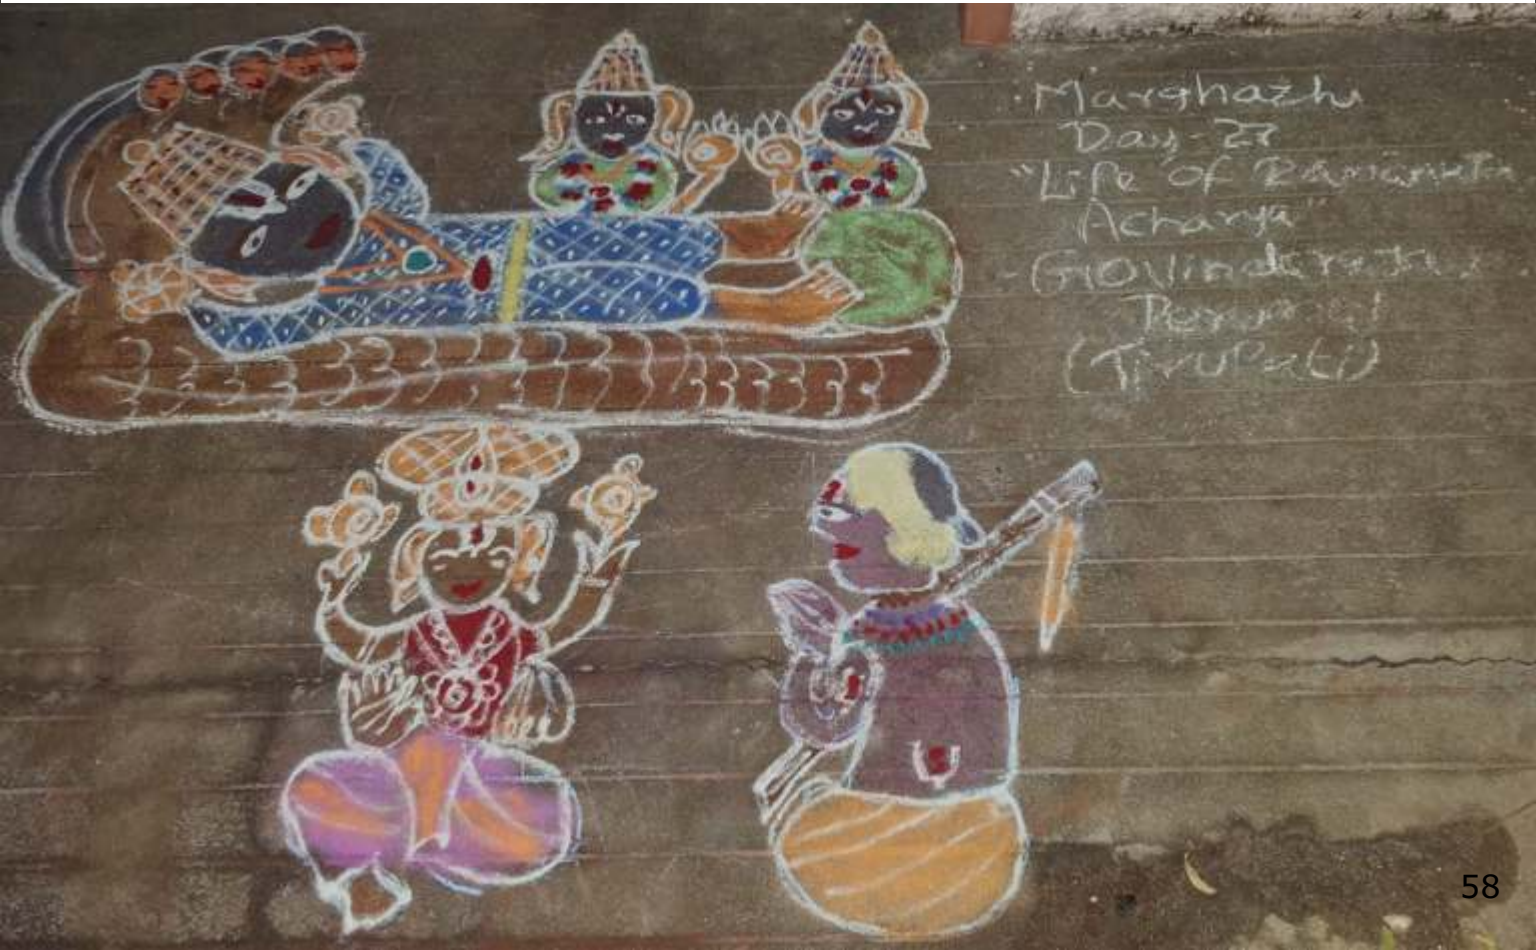 Marghazhi
Day-27
"Life of Ramanuja
Acharya"
Govindaraja
Perumal
(Tirupati)
58